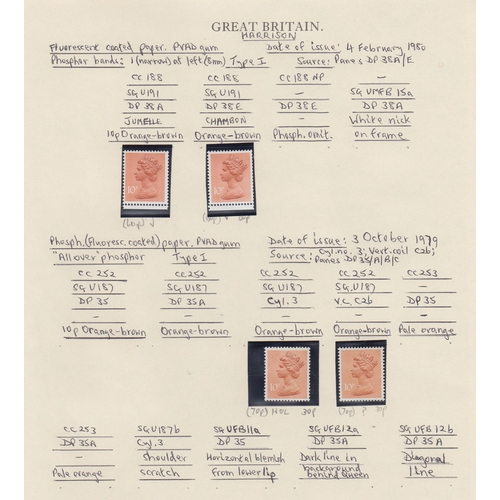 GREAT BRITAIN.
HARRISON
Fluorescent coated paper. PVAD gum Date of issue: 4 February 1980
Phosphor bands: 1 (narrow) at left (8mm) Type I Source: Panes DP 38A/E
CC 188 CC 188 CC 188 NP —
SG U191 SG U191 — SG UMFB 15a
DP 38A DP 38E DP 38E DP 38A
JUMELLE CHAMBON — White nick
10p Orange-brown Orange-brown Phosph. omit. on frame
10P 10P
Phosph. (fluoresc. coated) paper. PVAD gum Date of issue: 3 October 1979
"All over" phosphor Type I Source: Cyl. no. 3; Vert. coil C2b;
Panes DP 35/A/B/C
CC 252 CC 252 CC 252 CC 252 CC 253
SG U187 SG U187 SG U187 SG. U187 —
DP 35 DP 35A Cyl. 3 V.C. C2b DP 35
— — — — —
10p Orange-brown Orange-brown Orange-brown Orange-brown Pale orange
10P 10P
(70p) NOL 30p (70p) ? 30p
CC 253 SG U187b SG UFB11a SG UFB12a SG UFB 12b
DP 35A Cyl. 3 DP 35 DP 35A DP 35A
— shoulder Horizontal blemish Dark line in Diagonal
Pale orange scratch from lower lip background line
behind queen